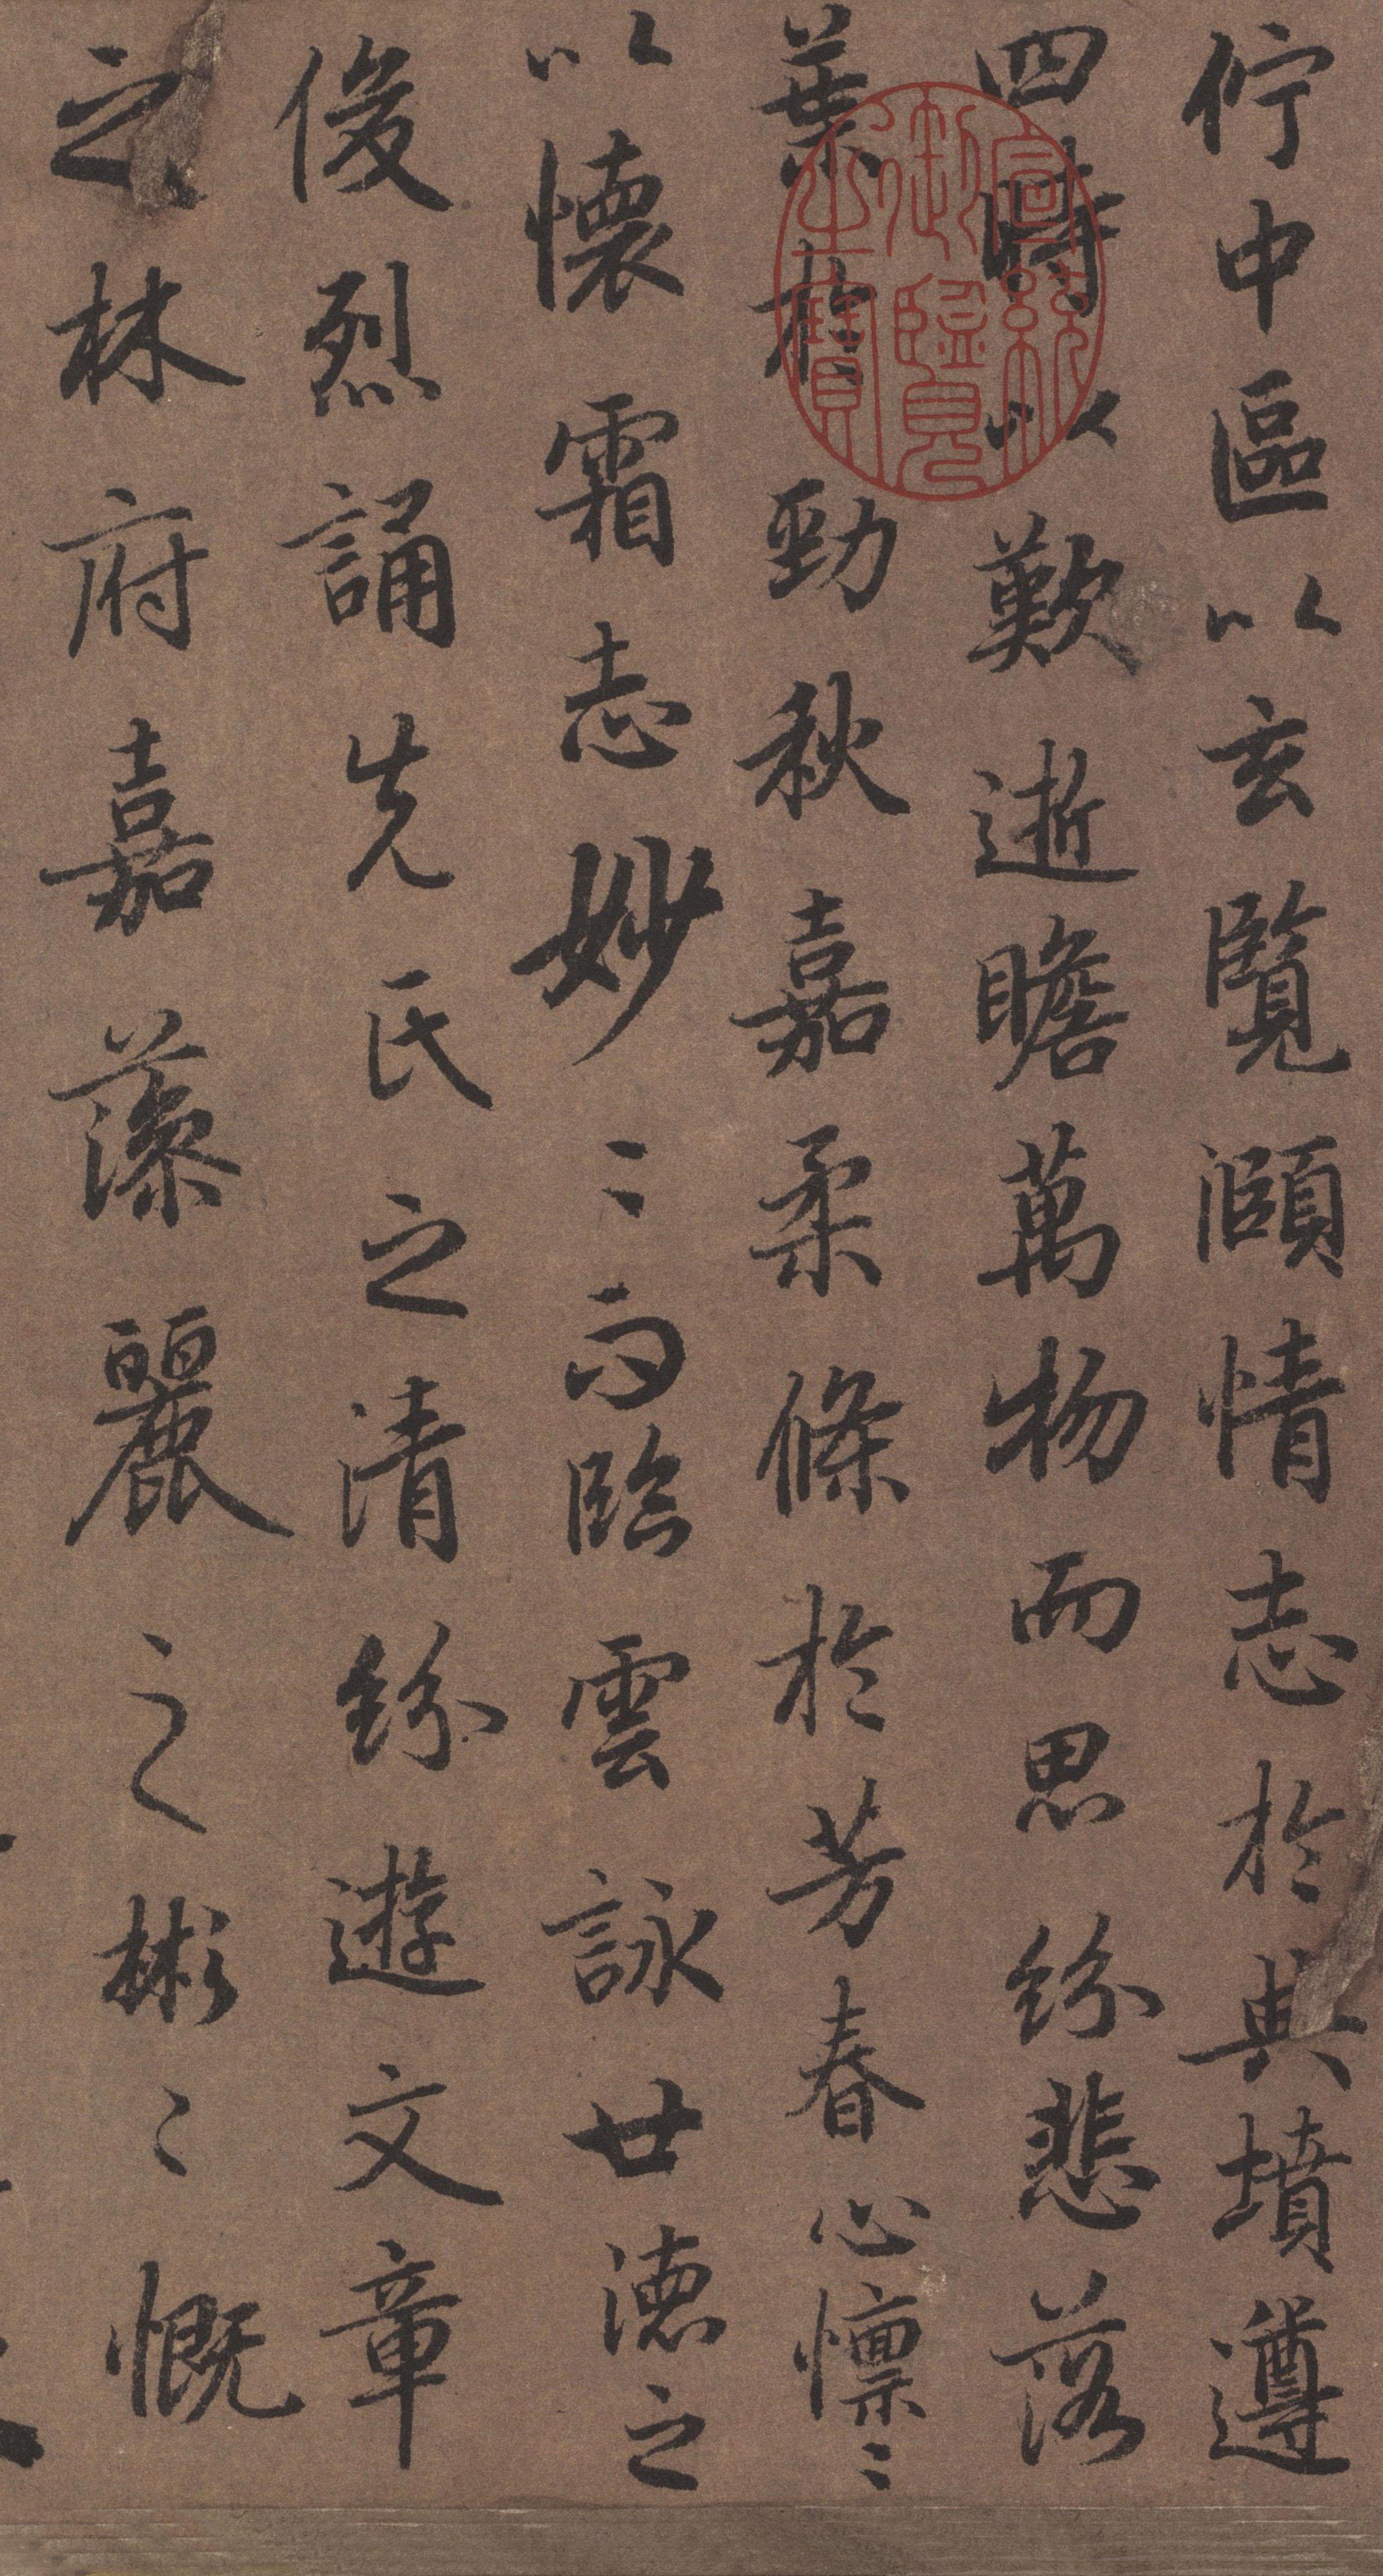 佇中區以玄覽頤情志於典墳遵
四時以歎逝瞻萬物而思紛悲落
葉於勁秋嘉柔條於芳春心懍〻
以懷霜志妙〻而臨雲詠世德之
俊烈誦先氏之清紛遊文章
之林府嘉藻麗之彬〻慨
宣統御覽之寶